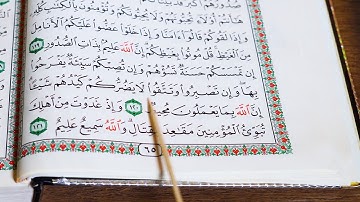 صُدُورُهُمْ أَكْبَرُ قَدْ
هَٰٓأَنتُمْ أُو۟لَآءِ تُحِبُّونَهُمْ وَلَا يُحِبُّونَكُمْ وَتُؤْمِنُونَ بِٱلْكِتَٰبِ كُلِّهِۦ
وَإِذَا لَقُوكُمْ قَالُوٓا۟ ءَامَنَّا وَإِذَا خَلَوْا۟ عَضُّوا۟ عَلَيْكُمُ ٱلْأَنَامِلَ
مِنَ ٱلْغَيْظِ قُلْ مُوتُوا۟ بِغَيْظِكُمْ إِنَّ ٱللَّهَ عَلِيمٌۢ بِذَاتِ ٱلصُّدُورِ ١١٩
إِن تَمْسَسْكُمْ حَسَنَةٌ تَسُؤْهُمْ وَإِن تُصِبْكُمْ سَيِّئَةٌ يَفْرَحُوا۟
بِهَا وَإِن تَصْبِرُوا۟ وَتَتَّقُوا۟ لَا يَضُرُّكُمْ كَيْدُهُمْ شَيْـًٔا
إِنَّ ٱللَّهَ بِمَا يَعْمَلُونَ مُحِيطٌ ١٢٠ وَإِذْ غَدَوْتَ مِنْ أَهْلِكَ
تُبَوِّئُ ٱلْمُؤْمِنِينَ مَقَٰعِدَ لِلْقِتَالِ وَٱللَّهُ سَمِيعٌ عَلِيمٌ ١٢١
٦٥